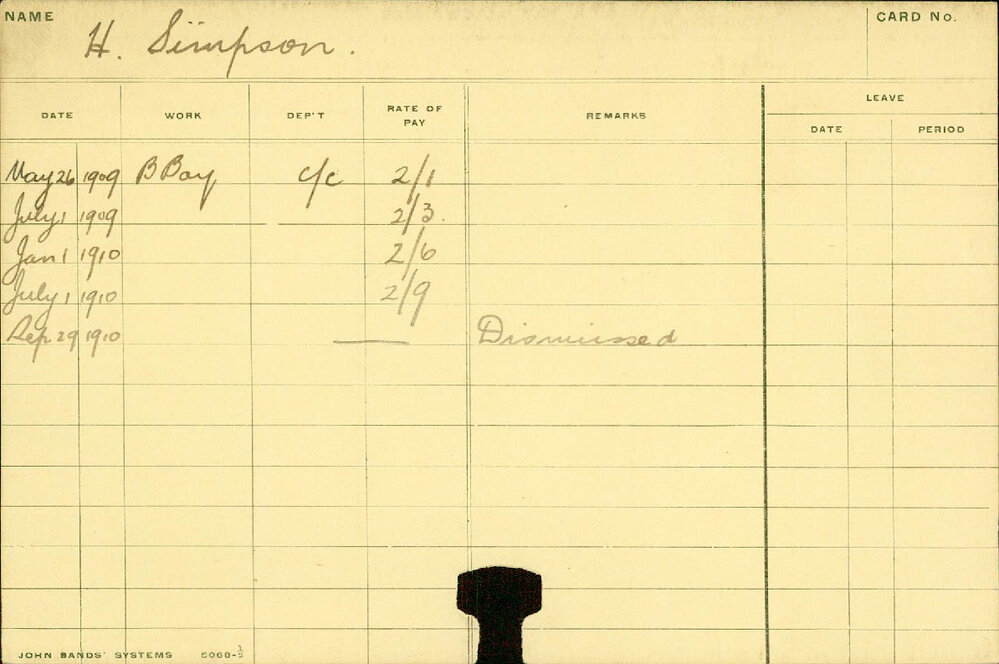 NAME H. Simpson. CARD No.
DATE WORK DEP'T RATE OF PAY REMARKS LEAVE
DATE PERIOD
May 26 1909 B Boy c/c 2/1
July 1 1909 2/3.
Jan 1 1910 2/6
July 1 1910 2/9
Sep 29 1910 — Dismissed
JOHN BANDS' SYSTEMS 5068-½